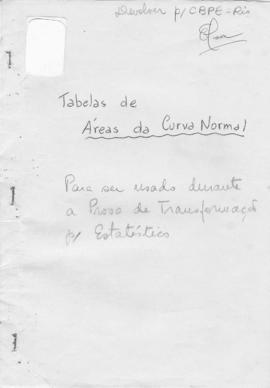 Devolver p/ CBPE - Rio
Tabelas de
Áreas da Curva Normal
Para ser usado durante
a Prova de Transformação
p/ Estatístico